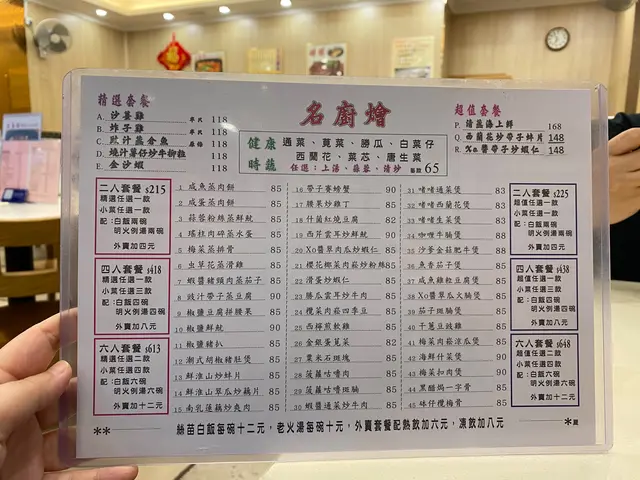 名廚燴
精選套餐
A. 沙薑雞 半隻 118
B. 炸子雞 半隻 118
C. 豉汁蒸倉魚 118
D. 燒汁薯仔炒牛柳粒 118
E. 金沙蝦 118
健康時蔬
通菜、莧菜、勝瓜、白菜仔
西蘭花、菜芯、唐生菜
任選：上湯、蒜蓉、清炒 65
超值套餐
P. 清蒸海上鮮 168
Q. 西蘭花炒帶子蚌片 148
R. Xo醬帶子炒蝦仁 148
二人套餐 $215
精選任選一款
小菜任選一款
配：白飯兩碗
明火例湯兩碗
外賣加四元
四人套餐 $418
精選任選一款
小菜任選三款
配：白飯四碗
明火例湯四碗
外賣加八元
六人套餐 $613
精選任選二款
小菜任選四款
配：白飯六碗
明火例湯六碗
外賣加十二元
1 咸魚蒸肉餅 85
2 咸蛋蒸肉餅 85
3 蒜蓉粉絲蒸鮮魷 85
4 瑤柱肉碎蒸水蛋 85
5 梅菜蒸排骨 85
6 虫草花蒸滑雞 85
7 蝦醬豬頸肉蒸茄子 85
8 豉汁帶子蒸豆腐 90
9 椒鹽豆腐拼腰果 85
10 椒鹽鮮魷 90
11 椒鹽豬扒 85
12 潮式胡椒豬肚煲 85
13 鮮淮山炒蚌片 85
14 鮮淮山翠瓜炒藕片 85
15 南乳蓮藕炒爽肉 85
16 帶子賽螃蟹 90
17 腰果炒雞丁 85
18 什菌紅燒豆腐 82
19 西芹雲耳炒鮮魷 90
20 Xo醬翠肉瓜炒蝦仁 85
21 櫻花椰菜肉崧炒粉絲 85
22 滑蛋炒蝦仁 85
23 勝瓜雲耳炒牛肉 85
24 欖菜肉崧四季豆 85
25 西檸煎軟雞 85
26 金銀蛋莧菜 82
27 粟米石斑塊 85
28 菠蘿咕嚕肉 85
29 菠蘿咕嚕斑腩 85
30 蝦醬通菜炒牛肉 85
31 啫啫通菜煲 83
32 啫啫西蘭花煲 83
33 啫啫唐生菜煲 83
34 咖喱牛腩煲 88
35 沙爹金菇肥牛煲 88
36 魚香茄子煲 85
37 咸魚雞粒豆腐煲 85
38 Xo醬翠瓜火腩煲 85
39 茄子斑腩煲 85
40 干蔥豆豉雞 85
41 梅菜肉崧涼瓜煲 85
42 海鮮什菜煲 90
43 梅菜扣肉煲 90
44 黑醋焗一字骨 85
45 砵仔欖梅骨 85
二人套餐 $225
超值任選一款
小菜任選一款
配：白飯兩碗
明火例湯兩碗
外賣加四元
四人套餐 $438
超值任選一款
小菜任選三款
配：白飯四碗
明火例湯四碗
外賣加八元
六人套餐 $648
超值任選二款
小菜任選四款
配：白飯六碗
明火例湯六碗
外賣加十二元
** 絲苗白飯每碗十二元，老火湯每碗十元，外賣套餐配熱飲加六元，凍飲加八元 *